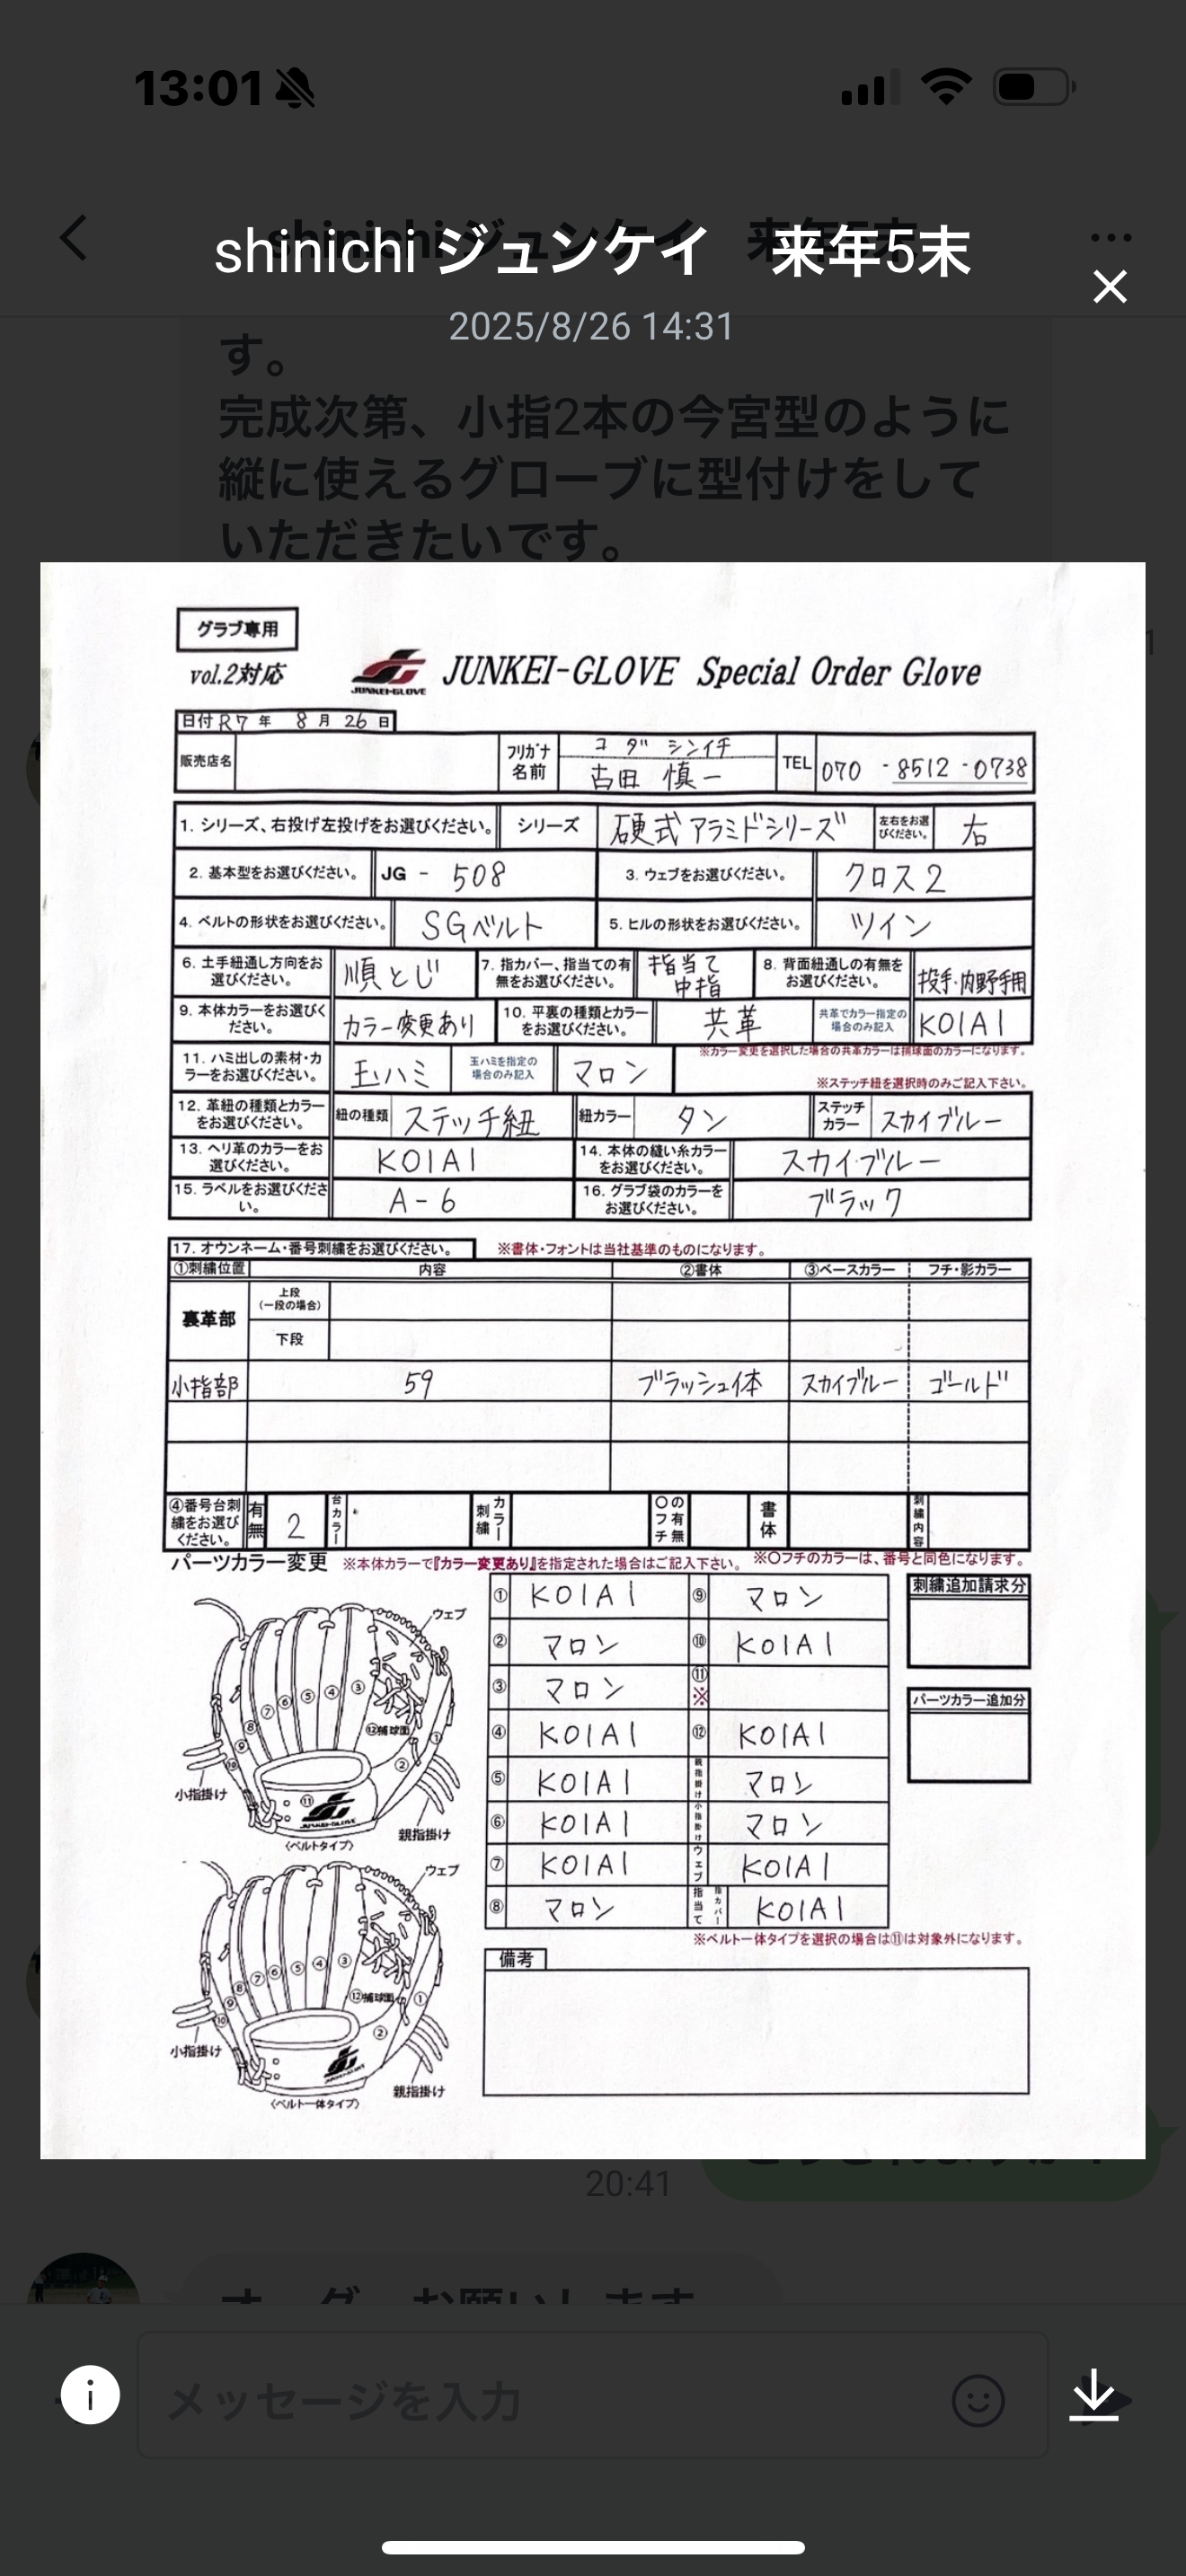 13:01
shinichi ジュンケイ　来年5末
2025/8/26 14:31
す。
完成次第、小指2本の今宮型のように
縦に使えるグローブに型付けをして
いただきたいです。
グラブ専用
vol.2対応
JUNKEI-GLOVE
JUNKEI-GLOVE Special Order Glove
日付 R7 年 8 月 26 日
販売店名
フリガナ コダ シンイチ
名前 古田 慎一
TEL 070 - 8512 - 0738
1. シリーズ、右投げ左投げをお選びください。 シリーズ 硬式 アラミドシリーズ 左右をお選びください。 右
2. 基本型をお選びください。 JG - 508 3. ウェブをお選びください。 クロス2
4. ベルトの形状をお選びください。 SGベルト 5. ヒルの形状をお選びください。 ツイン
6. 土手紐通し方向をお選びください。 順とじ 7. 指カバー、指当ての有無をお選びください。 指当て 中指 8. 背面紐通しの有無をお選びください。 投手・内野手用
9. 本体カラーをお選びください。 カラー変更あり 10. 平裏の種類とカラーをお選びください。 共革 共革でカラー指定の場合のみ記入 KOIAI
※カラー変更を選択した場合の共革カラーは捕球面のカラーになります。
11. ハミ出しの素材・カラーをお選びください。 玉ハミ 玉ハミを指定の場合のみ記入 マロン
※ステッチ紐を選択時のみご記入下さい。
12. 革紐の種類とカラーをお選びください。 紐の種類 ステッチ紐 紐カラー タン ステッチカラー スカイブルー
13. ヘリ革のカラーをお選びください。 KOIAI 14. 本体の縫い糸カラーをお選びください。 スカイブルー
15. ラベルをお選びください。 A-6 16. グラブ袋のカラーをお選びください。 ブラック
17. オウンネーム・番号刺繍をお選びください。 ※書体・フォントは当社基準のものになります。
①刺繍位置 内容 ②書体 ③ベースカラー フチ・影カラー
裏革部 上段(一段の場合)
下段
小指部 59 ブラッシュ体 スカイブルー ゴールド
④番号台刺繍をお選びください。 有無 2 台カラー 刺繍カラー 〇フチの有無 書体 刺繍内容
パーツカラー変更 ※本体カラーで『カラー変更あり』を指定された場合はご記入下さい。 ※〇フチのカラーは、番号と同色になります。
① KOIAI ⑨ マロン
② マロン ⑩ KOIAI
③ マロン ⑪※
④ KOIAI ⑫ KOIAI
⑤ KOIAI 親指掛け マロン
⑥ KOIAI 小指掛け マロン
⑦ KOIAI ウェブ KOIAI
⑧ マロン 指当て 指カバー KOIAI
刺繍追加請求分
パーツカラー追加分
※ベルト一体タイプを選択の場合は⑪は対象外になります。
備考
ウェブ
⑩ ⑨ ⑧ ⑦ ⑥ ⑤ ④ ③ ⑫捕球面 ① ②
⑪
JUNKEI-GLOVE
小指掛け
親指掛け
〈ベルトタイプ〉
ウェブ
⑩ ⑨ ⑧ ⑦ ⑥ ⑤ ④ ③ ⑫捕球面 ① ②
小指掛け
親指掛け
〈ベルト一体タイプ〉
20:41
オーダーお願いします
メッセージを入力